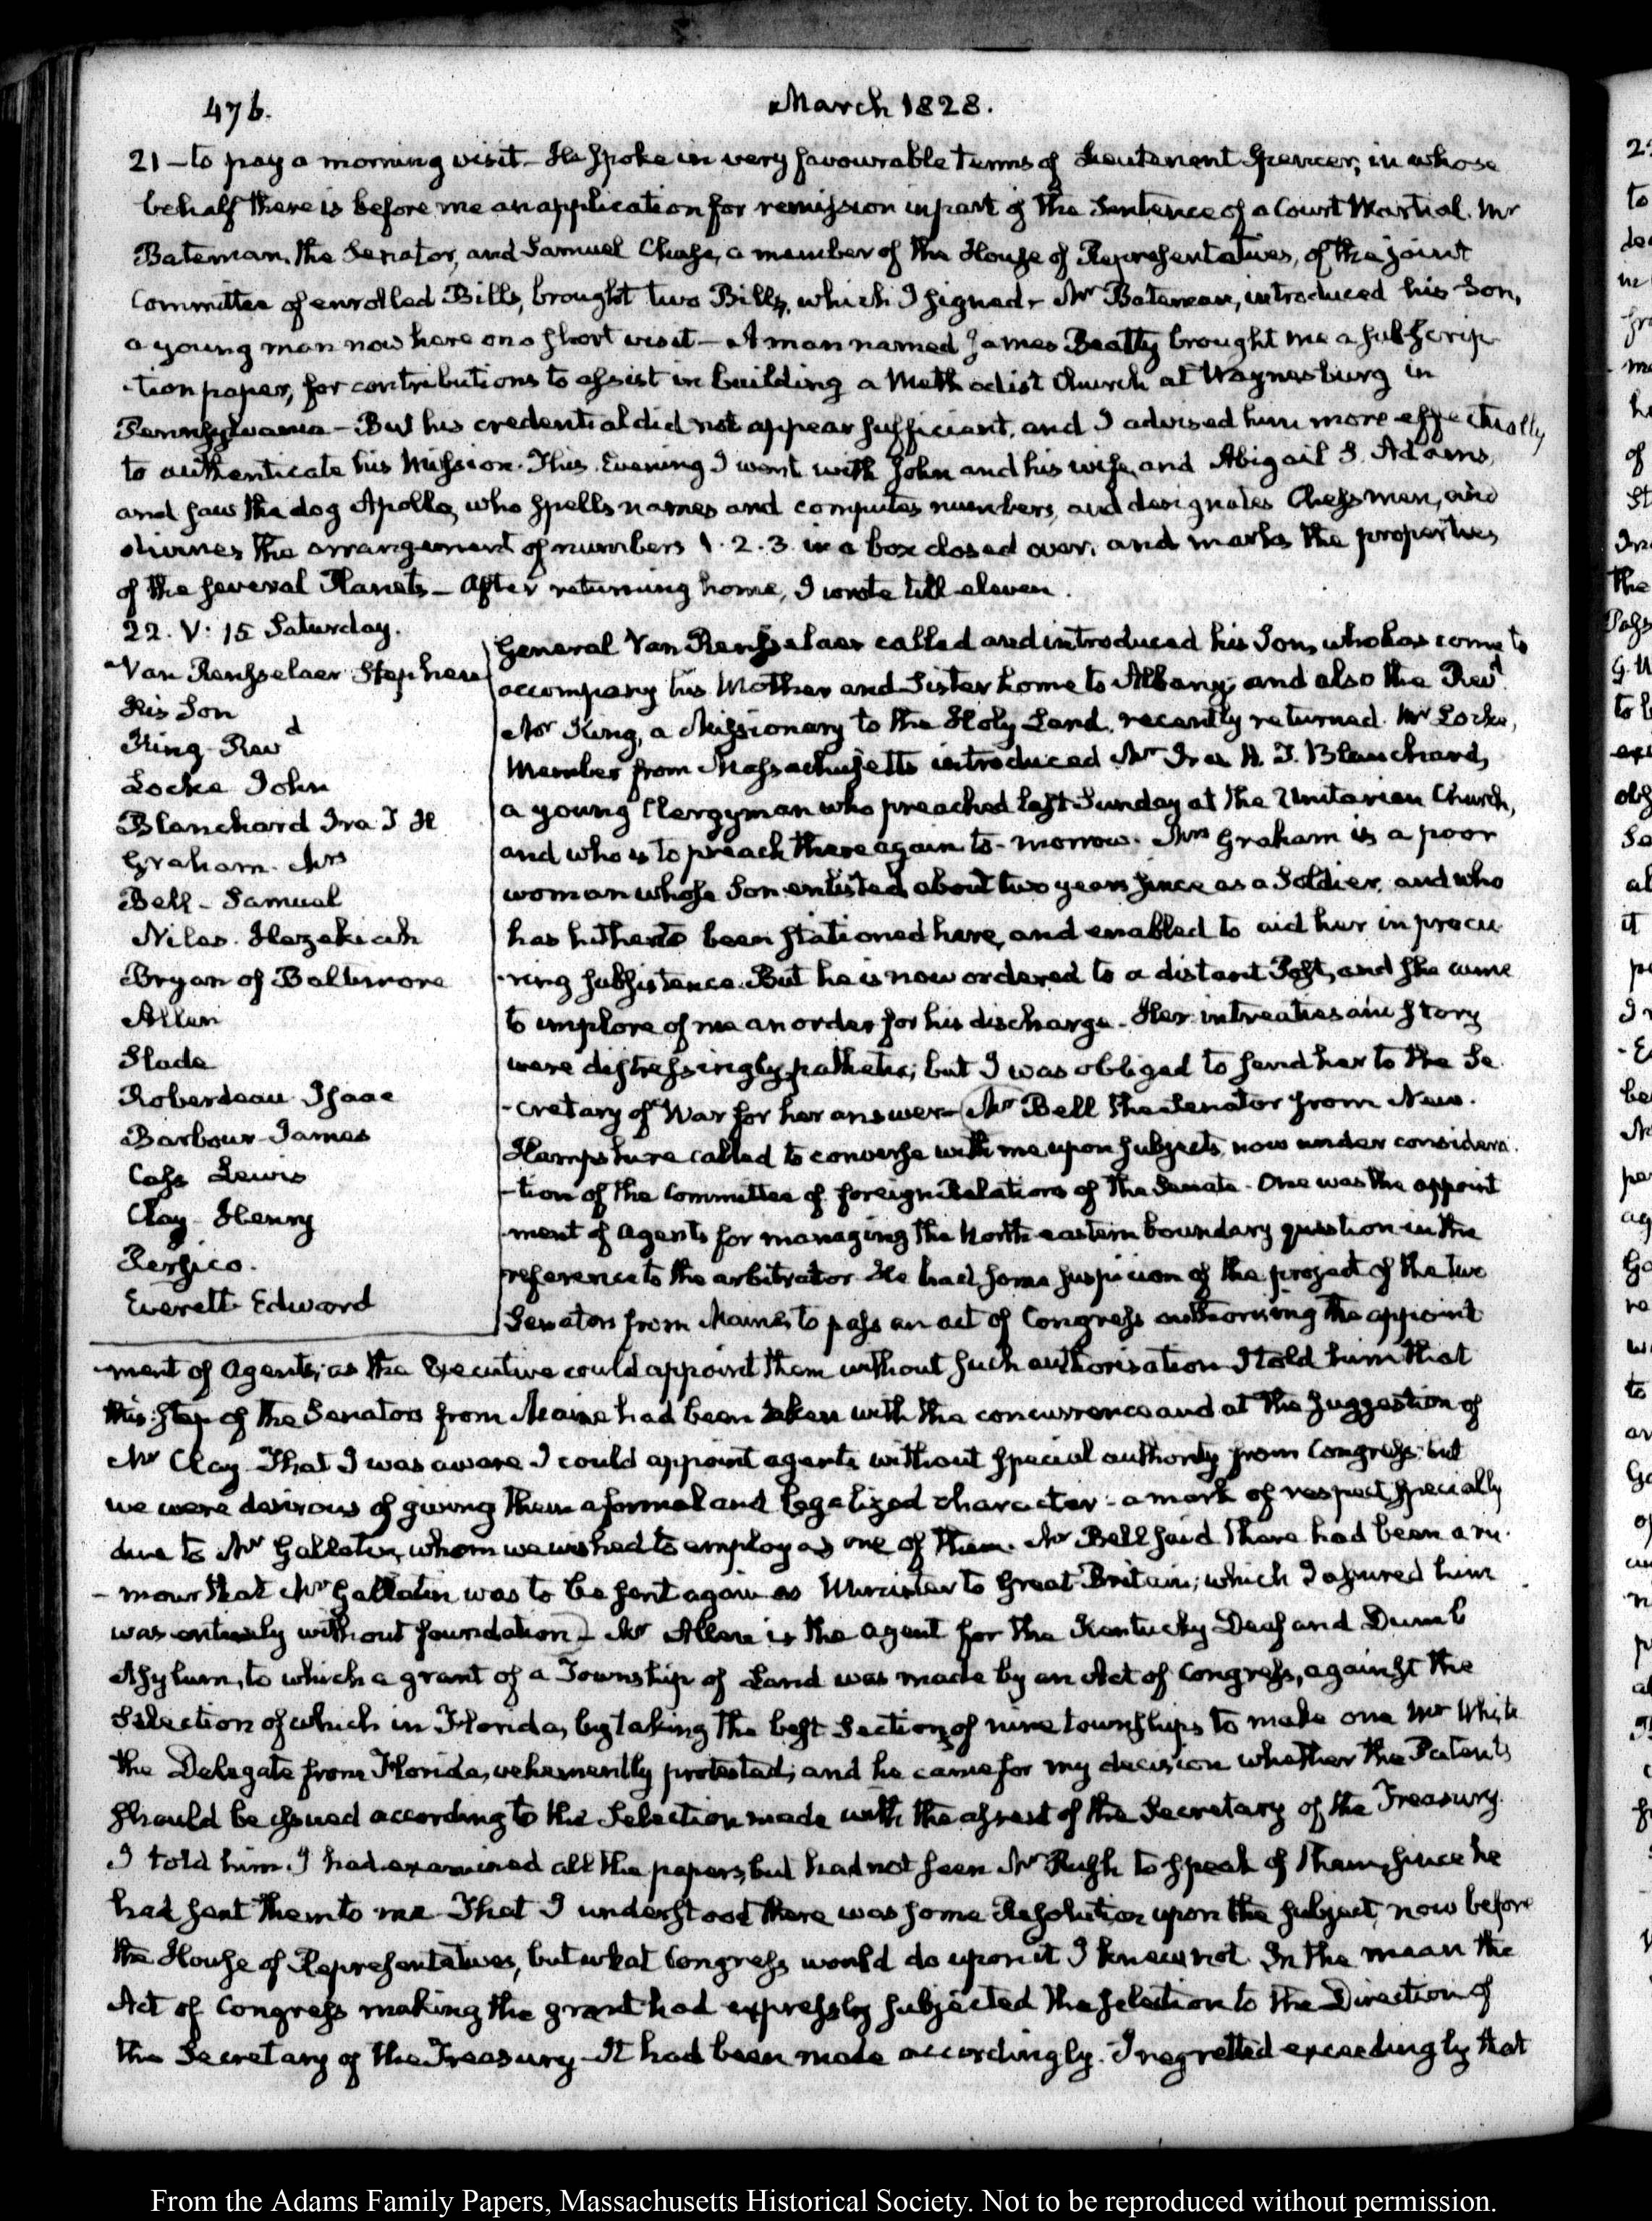 476.
March 1828.
21 — to pay a morning visit — He spoke in very favourable terms of Lieutenant Spencer, in whose
behalf there is before me an application for remission in part of the Sentence of a Court Martial. Mr
Bateman, the Senator, and Samuel Chase, a member of the House of Representatives, of the joint
Committee of enrolled Bills, brought two Bills, which I signed — Mr Bateman, introduced his Son,
a young man now here on a short visit — A man named James Beatty brought me a subscrip-
-tion paper, for contributions to assist in building a Methodist Church at Waynesburg in
Pennsylvania — But his credential did not appear sufficient, and I advised him more effectually
to authenticate his Mission. This Evening I went with John and his wife, and Abigail S. Adams,
and saw the dog Apollo, who spells names and computes numbers, and designates Chess men, and
divines the arrangement of numbers 1. 2. 3. in a box closed over, and marks the properties
of the several Planets — After returning home, I wrote till eleven.
22. V: 15 Saturday.
Van Rensselaer Stephen
His Son
King Revd
Locke John
Blanchard Ira T H
Graham. Mrs
Bell — Samuel
Niles. Hezekiah
Bryan of Baltimore
Allen
Slade
Roberdeau Isaac
Barbour James
Cass Lewis
Clay Henry
Persico.
Everett Edward
General Van Rensselaer called and introduced his Son, who has come to
accompany his Mother and Sister home to Albany; and also the Revd
Mr King, a Missionary to the Holy Land, recently returned. Mr Locke,
Member from Massachusetts introduced Mr Ira H. T. Blanchard,
a young Clergyman who preached last Sunday at the Unitarian Church,
and who is to preach there again to-morrow. Mrs Graham is a poor
woman whose Son enlisted about two years since as a Soldier, and who
has hitherto been stationed here, and enabled to aid her in procu-
-ring subsistence. But he is now ordered to a distant Post, and she came
to implore of me an order for his discharge. Her intreaties and story
were distressingly pathetic; but I was obliged to send her to the Se-
-cretary of War for her answer — Mr Bell the Senator from New-
Hampshire called to converse with me upon subjects now under considera-
-tion of the Committee of foreign Relations of the Senate. One was the appoint
-ment of Agents for managing the North-eastern boundary question in the
reference to the arbitrator. He had some suspicion of the project of the two
Senators from Maine, to pass an act of Congress authorising the appoint
-ment of Agents; as the Executive could appoint them without such authorisation. I told him that
this step of the Senators from Maine had been taken with the concurrence and at the suggestion of
Mr Clay. That I was aware I could appoint agents without special authority from Congress, but
we were desirous of giving them a formal and legalized character — a mark of respect specially
due to Mr Gallatin, whom we wished to employ as one of them. Mr Bell said there had been a ru-
-mour that Mr Gallatin was to be sent again as Minister to Great-Britain; which I assured him
was entirely without foundation — Mr Allen is the agent for the Kentucky Deaf and Dumb
Asylum, to which a grant of a Township of Land was made by an Act of Congress, against the
Selection of which in Florida, by taking the best Sections of nine townships to make one Mr White
the Delegate from Florida, vehemently protested; and he came for my decision whether the Patents
should be issued according to the Selection made with the assent of the Secretary of the Treasury.
I told him I had examined all the papers, but had not seen Mr Rush to speak of them, since he
had sent them to me. That I understood there was some Resolution upon the subject, now before
the House of Representatives, but what Congress would do upon it I knew not. In the mean the
Act of Congress making the grant had expressly subjected the selection to the Direction of
the Secretary of the Treasury — It had been made accordingly. I regretted exceedingly that
From the Adams Family Papers, Massachusetts Historical Society. Not to be reproduced without permission.